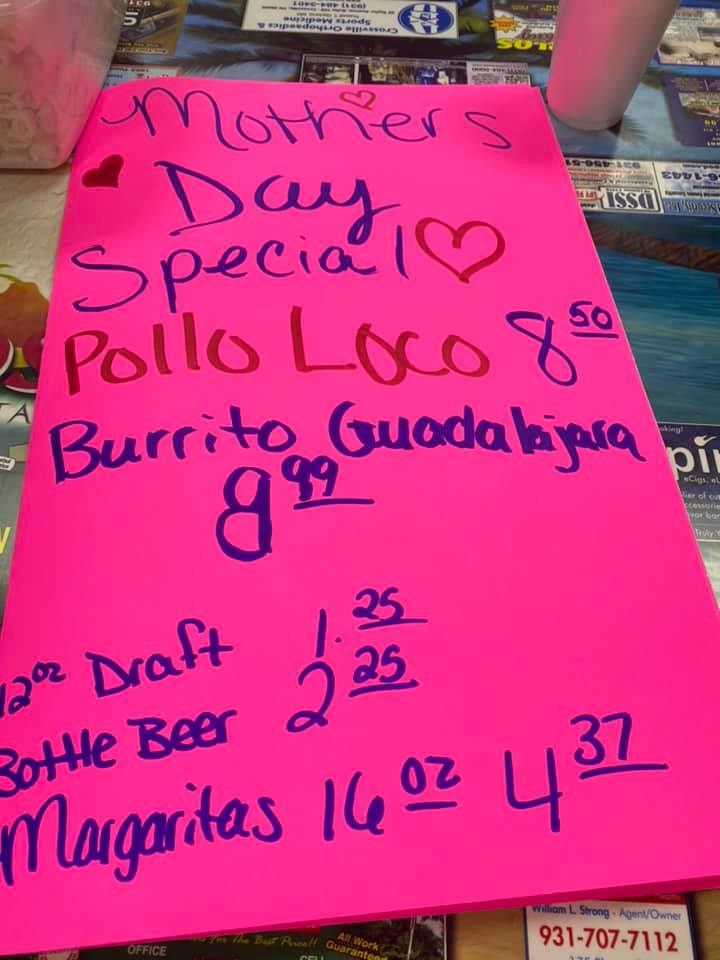 Crossville Orthopaedics &
Sports Medicine
(931) 484-3401
Mothers
Day
Special
Pollo Loco 8 50
Burrito Guadalajara
8 99
12oz Draft 1.25
Bottle Beer 2 25
Margaritas 16 oz 4 37
DSSI
eCigs
Truly
William L. Strong - Agent/Owner
931-707-7112
For The Best Price!!
All Work
Guaranteed
OFFICE